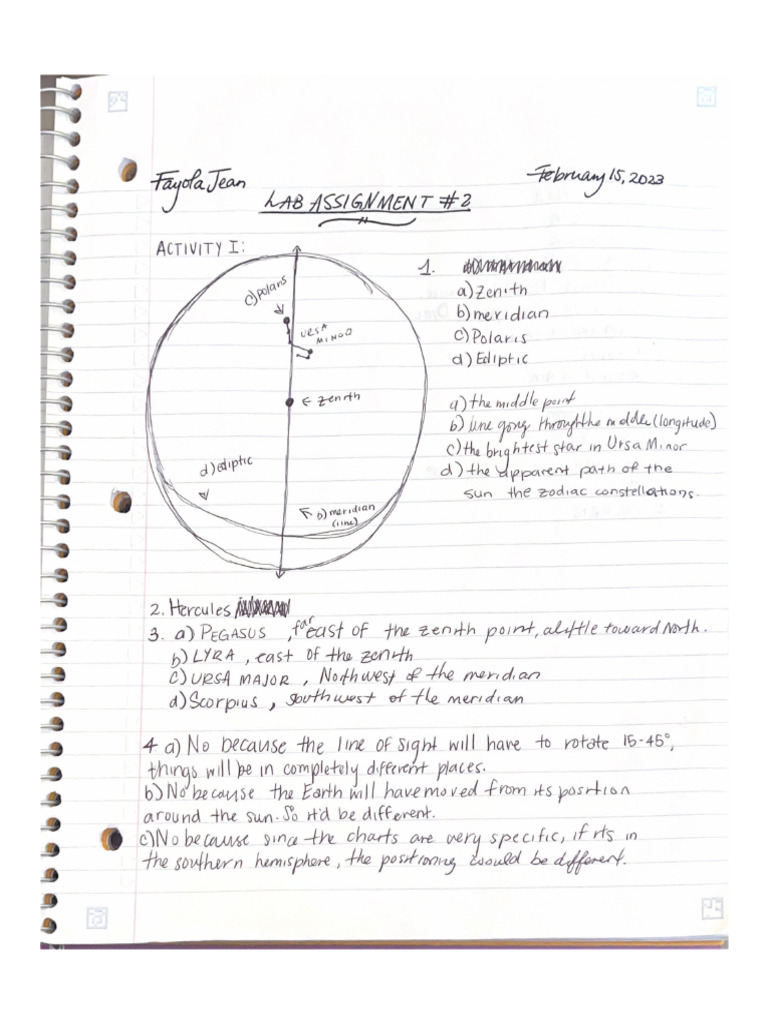 Fayola Jean
February 15, 2023
LAB ASSIGNMENT #2
ACTIVITY I:
c) polaris
URSA
MINOR
← zenith
d) ecliptic
b) meridian
(line)
1.
a) Zenith
b) meridian
c) Polaris
d) Ecliptic
a) the middle point
b) line going through the middle (longitude)
c) the brightest star in Ursa Minor
d) the apparent path of the
sun the zodiac constellations.
2. Hercules
3. a) PEGASUS, far east of the zenith point, a little toward North.
b) LYRA, east of the zenith
c) URSA MAJOR, Northwest of the meridian
d) Scorpius, southwest of the meridian
4 a) No because the line of sight will have to rotate 15-45°,
things will be in completely different places.
b) No because the Earth will have moved from its position
around the sun. So it'd be different.
c) No because since the charts are very specific, if its in
the southern hemisphere, the positioning would be different.